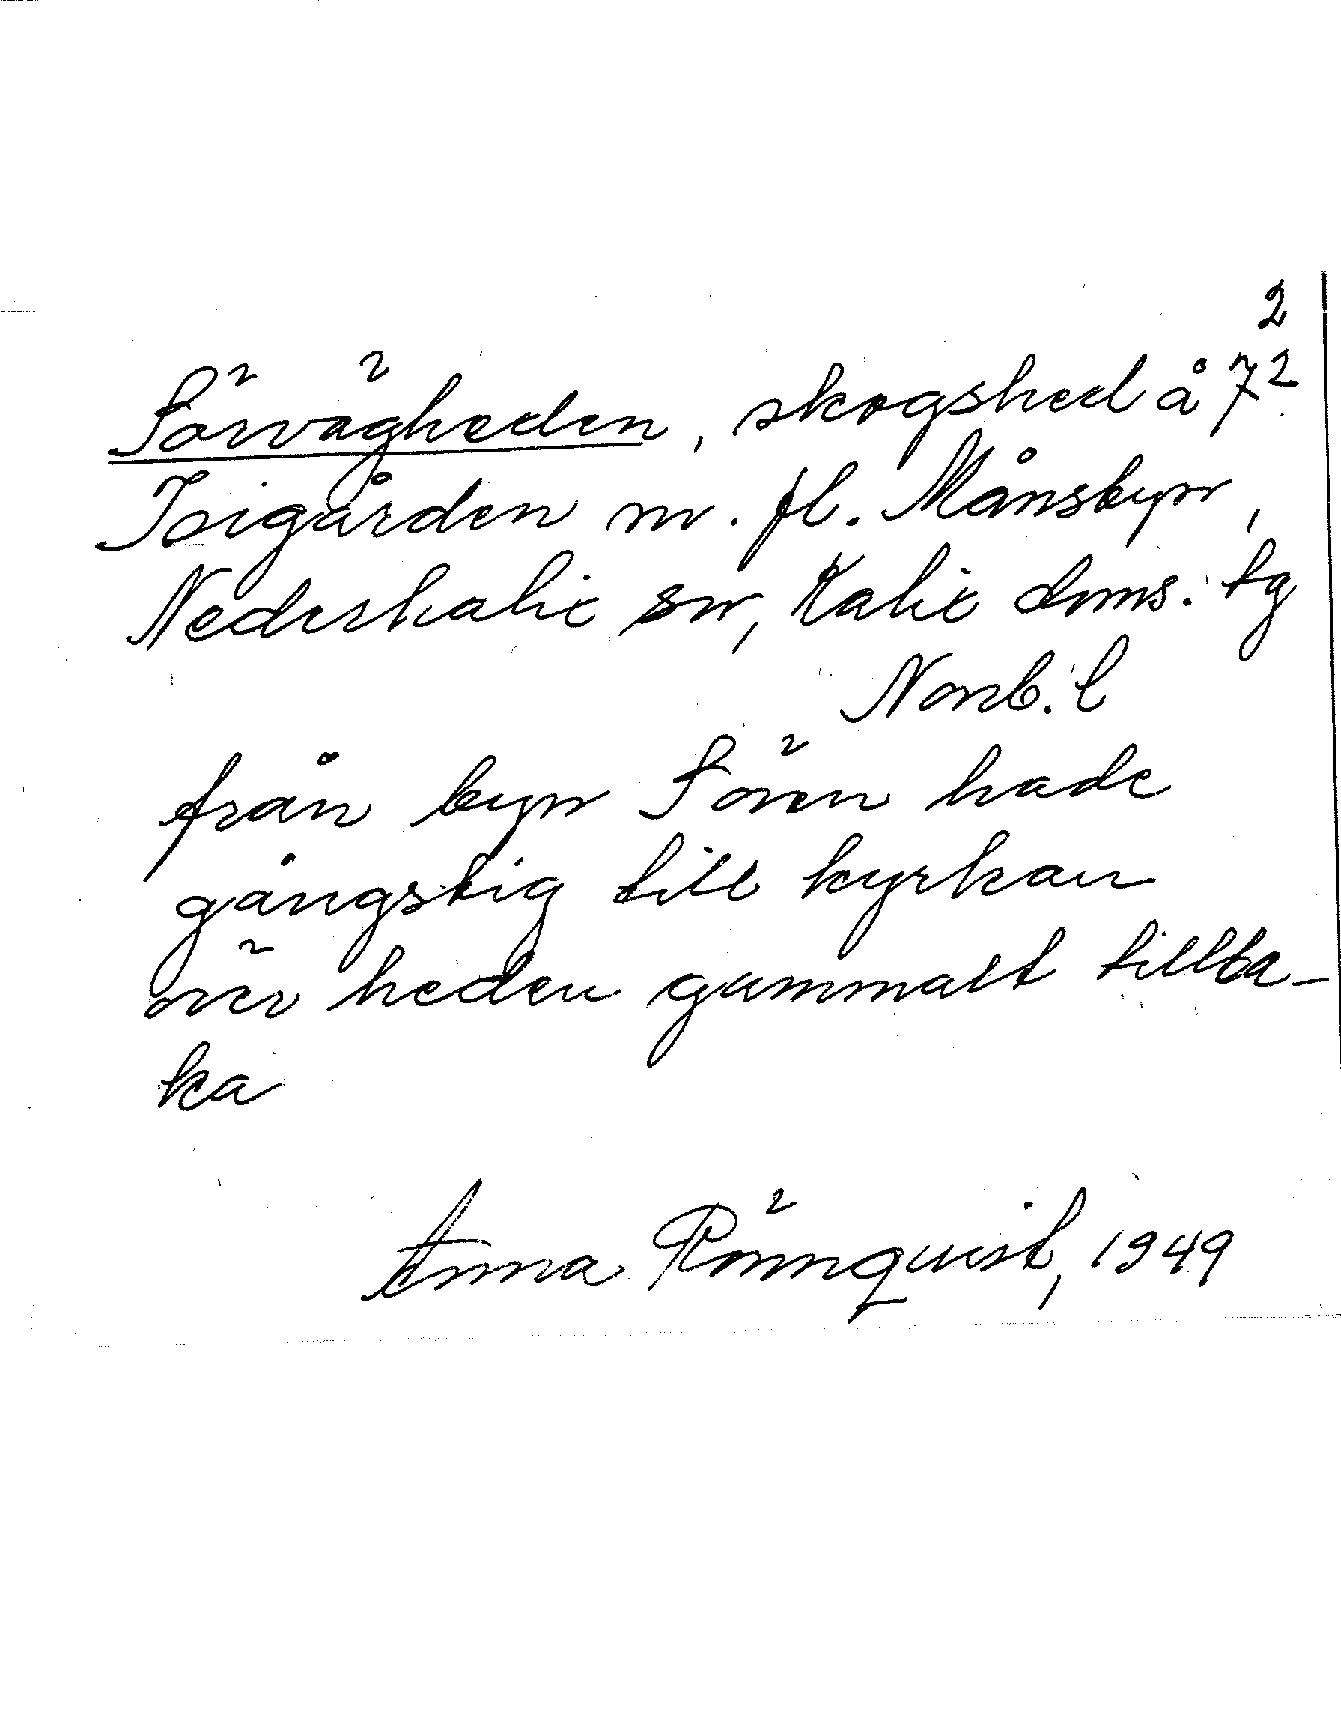 2
Sörvägheden, skogshed å 7²
Isigården m. fl. Månsbyn,
Nederkalix sn, Kalix doms. tg
Norrb. l
från byn Sören hade
gångstig till kyrkan
över heden gammalt tillba-
ka
Anna Rönnquist, 1949